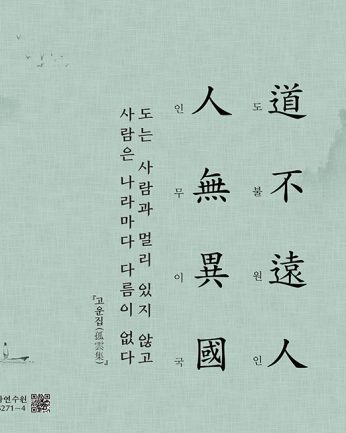 道不遠人
도불원인
人無異國
인무이국
도는 사람과 멀리 있지 않고
사람은 나라마다 다름이 없다
『고운집(孤雲集)』
연수원
271-4